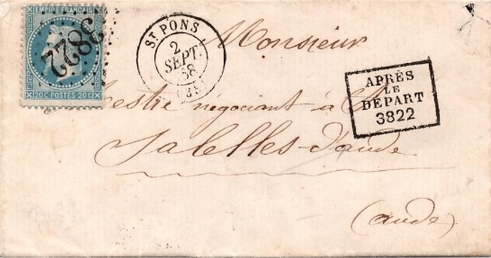 EMPIRE FRANÇAIS
3822
20C POSTES 20C
ST PONS
2
SEPT.
68
Monsieur
APRÈS
LE
DÉPART
3822
négociant à
Salelles d'aude
(aude)